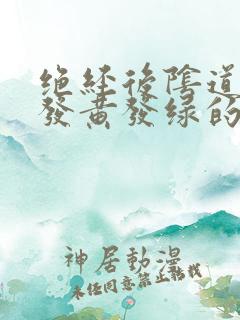 绝经後陰道
發黄發绿的
神居動漫
未经同意禁止转载